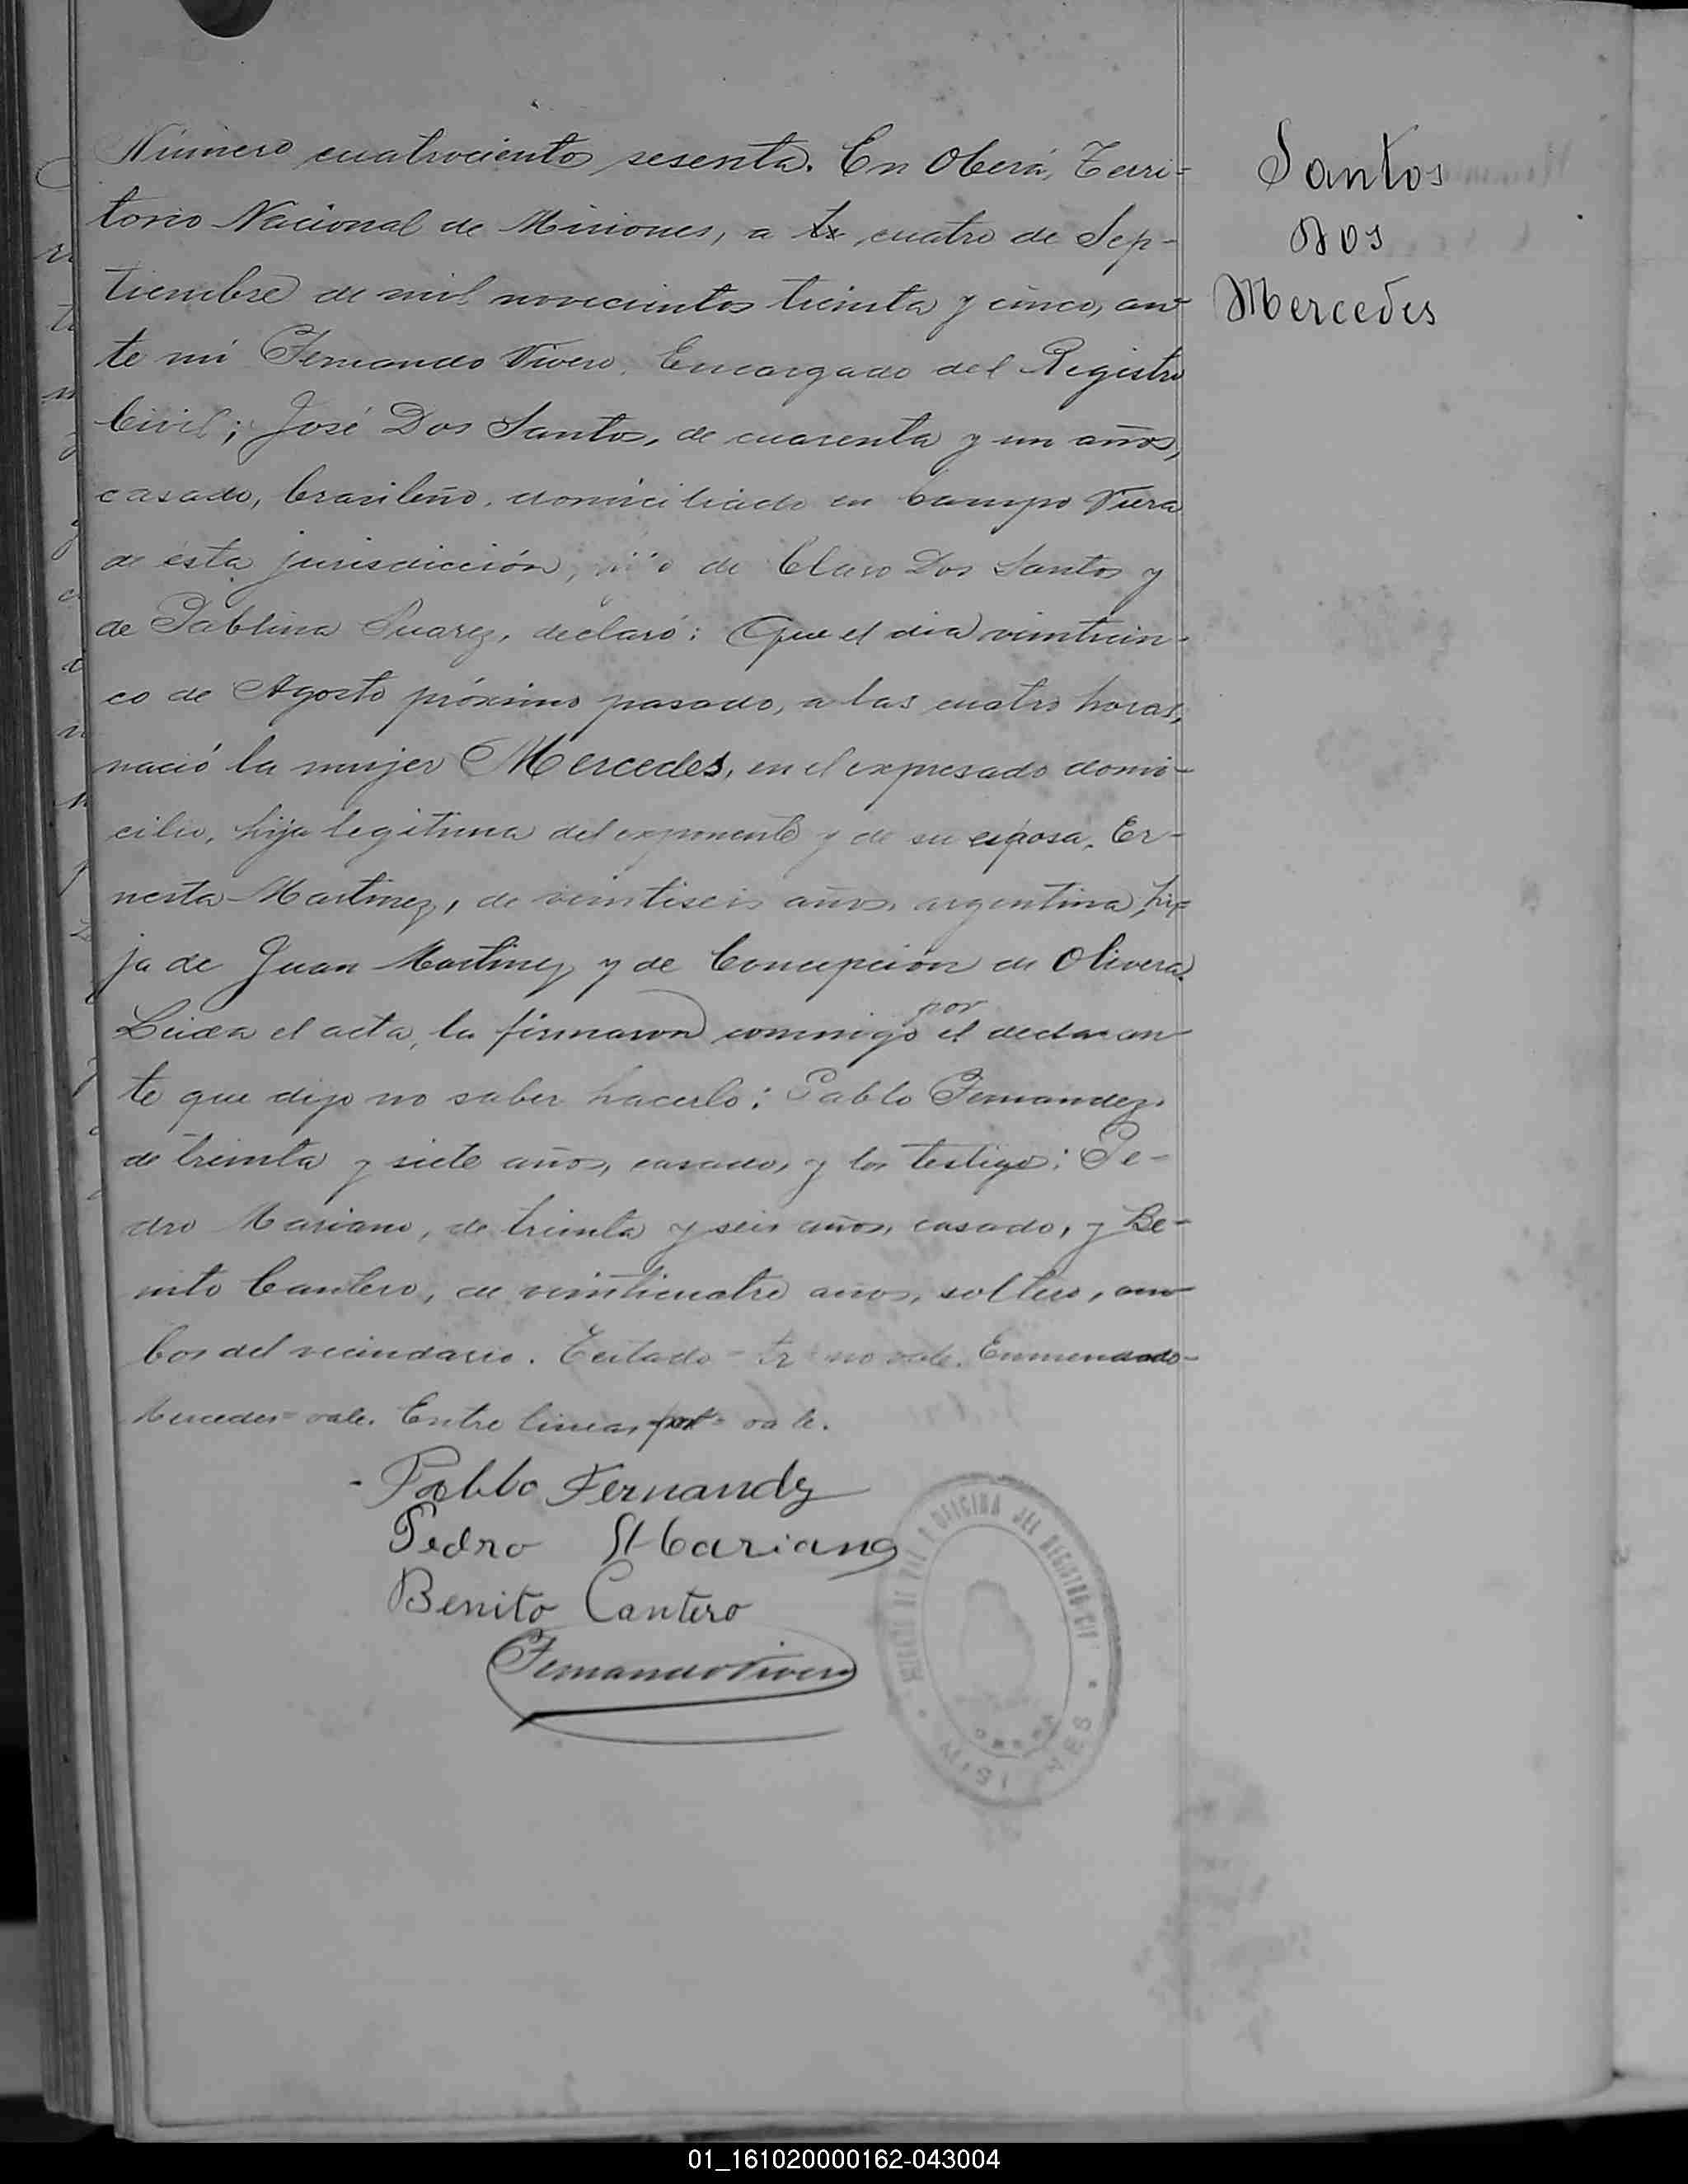 Número cuatrocientos sesenta. En Oberá, Terri-
torio Nacional de Misiones, a tr cuatro de Sep-
tiembre de mil novecientos treinta y cinco, an-
te mi Fernando Vivero, Encargado del Registro
Civil; José Dos Santos, de cuarenta y un años,
casado, brasileño, domiciliado en Campo Viera
de esta jurisdicción, hijo de Claro Dos Santos y
de Pablina Suarez, declaró: Que el dia veinticin-
co de Agosto próximo pasado, a las cuatro horas,
nació la mujer Mercedes, en el expresado domi-
cilio, hija legitima del exponente y de su esposa, Er-
nesta Martinez, de veintiseis años, argentina, hi-
ja de Juan Martinez y de Concepción de Olivera.
Leida el acta, la firmaron conmigo por el declaran-
te que dijo no saber hacerlo: Pablo Fernandez,
de treinta y siete años, casado, y los testigos: Pe-
dro Mariano, de treinta y seis años, casado, y Be-
nito Cantero, de veinticuatro años, soltero, am-
bos del vecindario. Testado = tr = no vale. Enmendado-
Mercedes = vale. Entre lineas por = vale.
Pablo Fernandz
Pedro Mariano
Benito Cantero
Fernando Vivero
Santos
Dos
Mercedes
OFICINA DEL REGISTRO CIVIL
MISIONES
OBERA
01_161020000162-043004